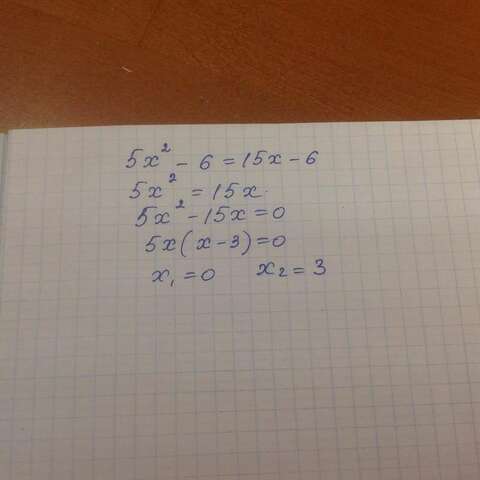 5x² - 6 = 15x - 6
5x² = 15x.
5x² - 15x = 0
5x(x - 3) = 0
x₁ = 0 x₂ = 3